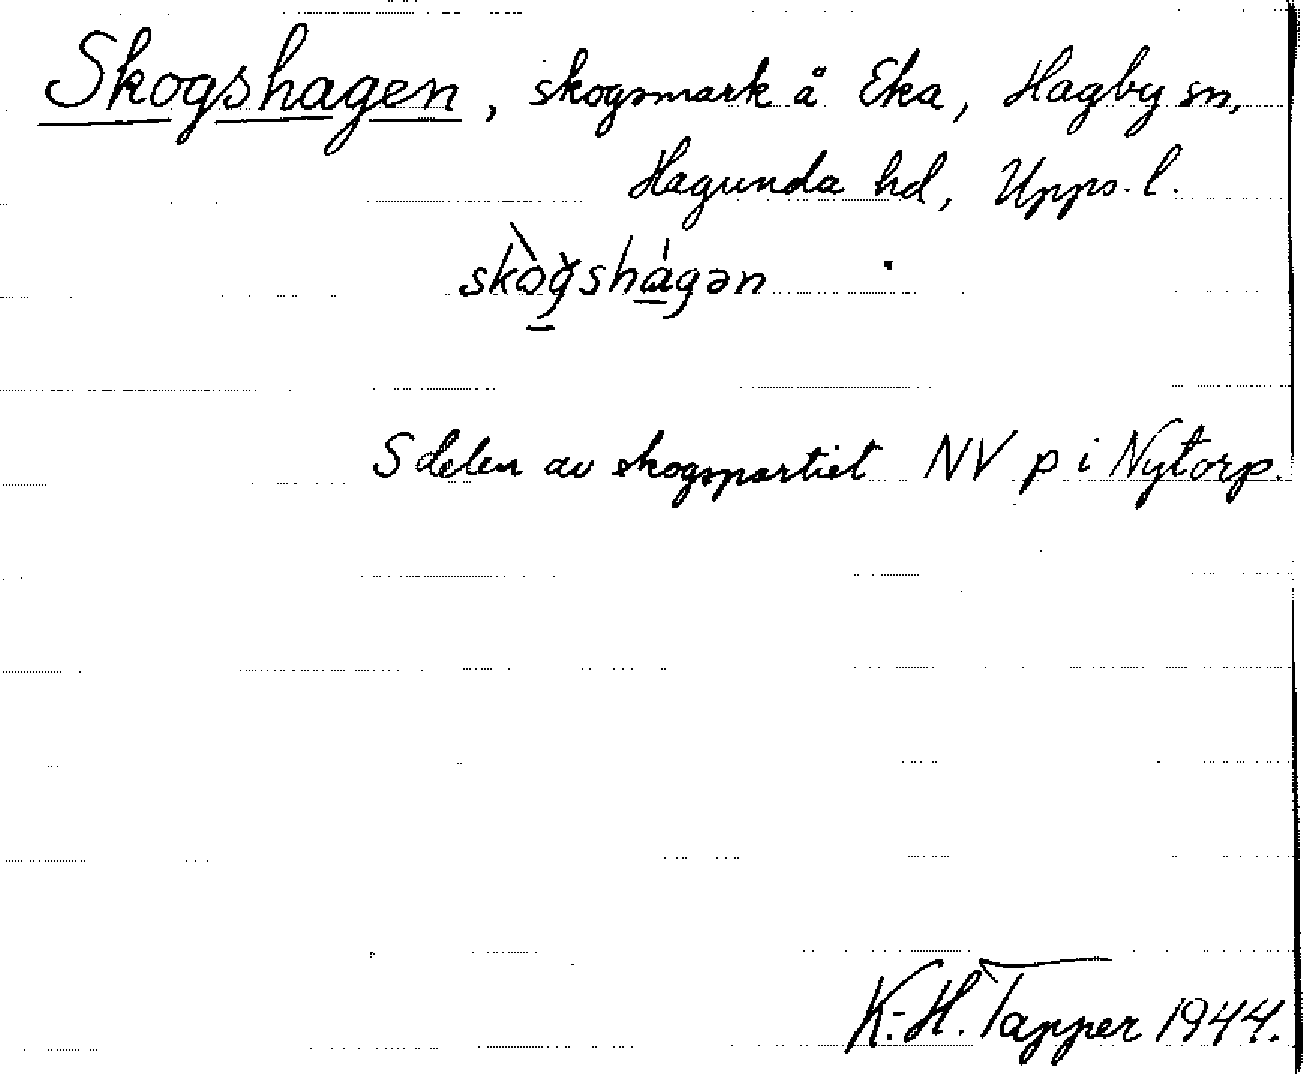 Skogshagen, skogsmark å Eka, Hagby sn,
Hagunda hd, Upps. l.
skòǧshágən
S delen av skogspartiet NV p i Nytorp.
K.-H. Tapper 1944.